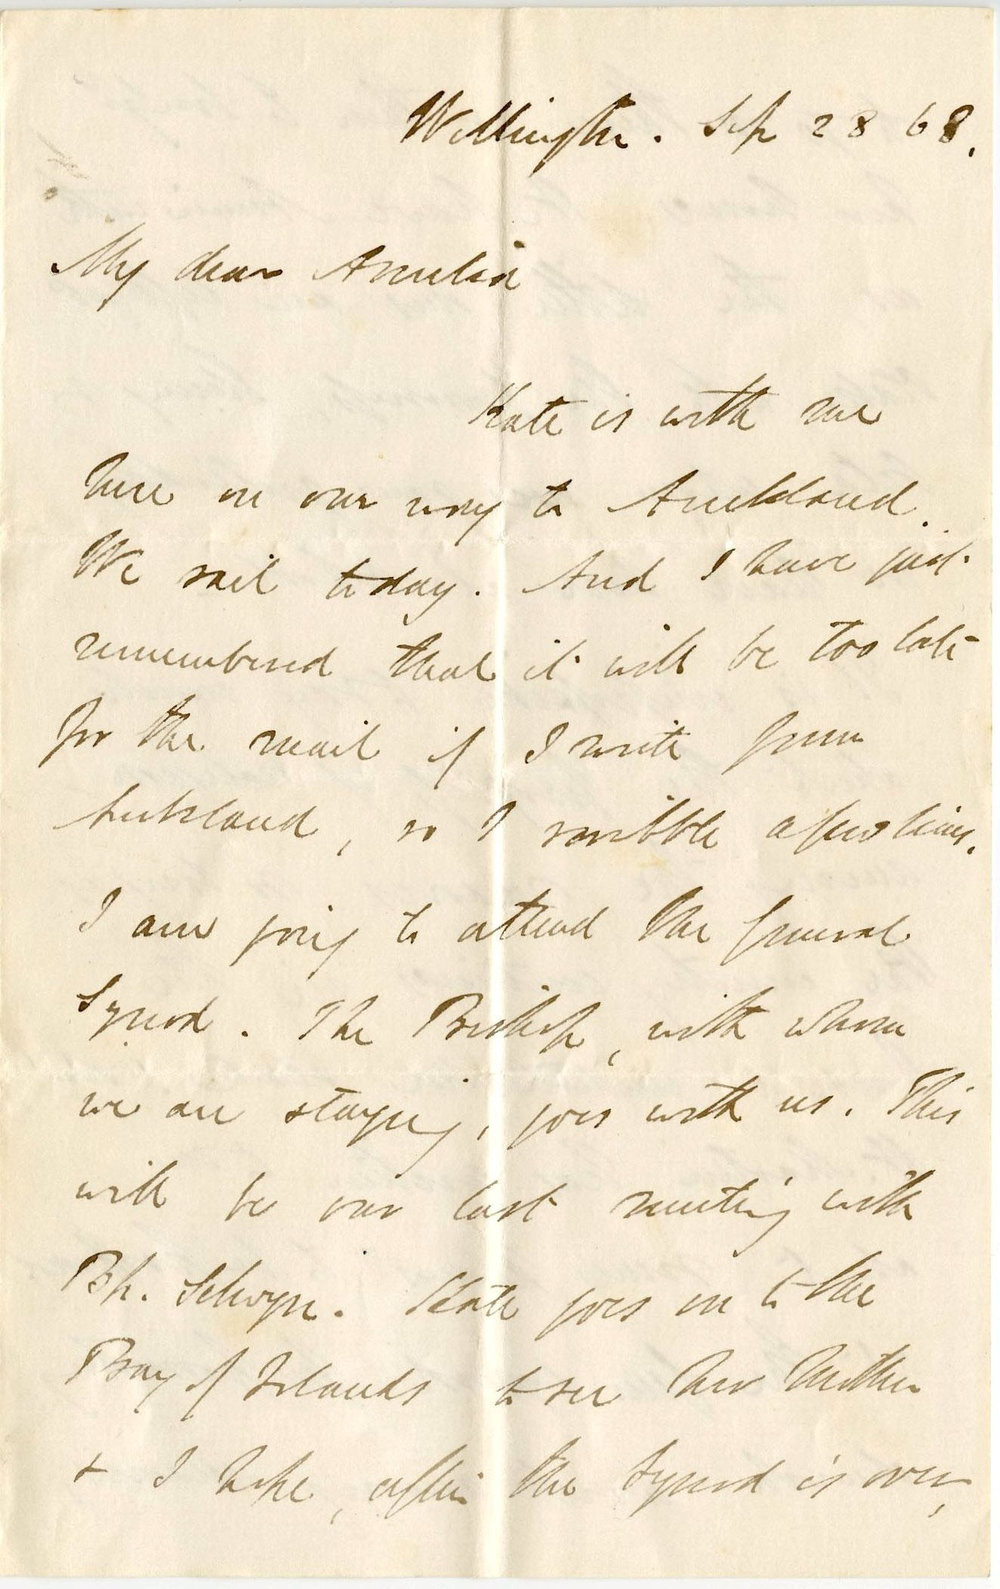 Wellington. Sep 28 68.
My dear Amelia
Kate is with me
here on our way to Auckland.
We sail today. And I have just
remembered that it will be too late
for the mail if I write from
Auckland, so I scribble a few lines.
I am going to attend the General
Synod. The Bishop, with whom
we are staying, goes with us. This
will be our last meeting with
Bp. Selwyn. Kate goes on to the
Bay of Islands to see her Mother
& I hope, after the Synod is over,